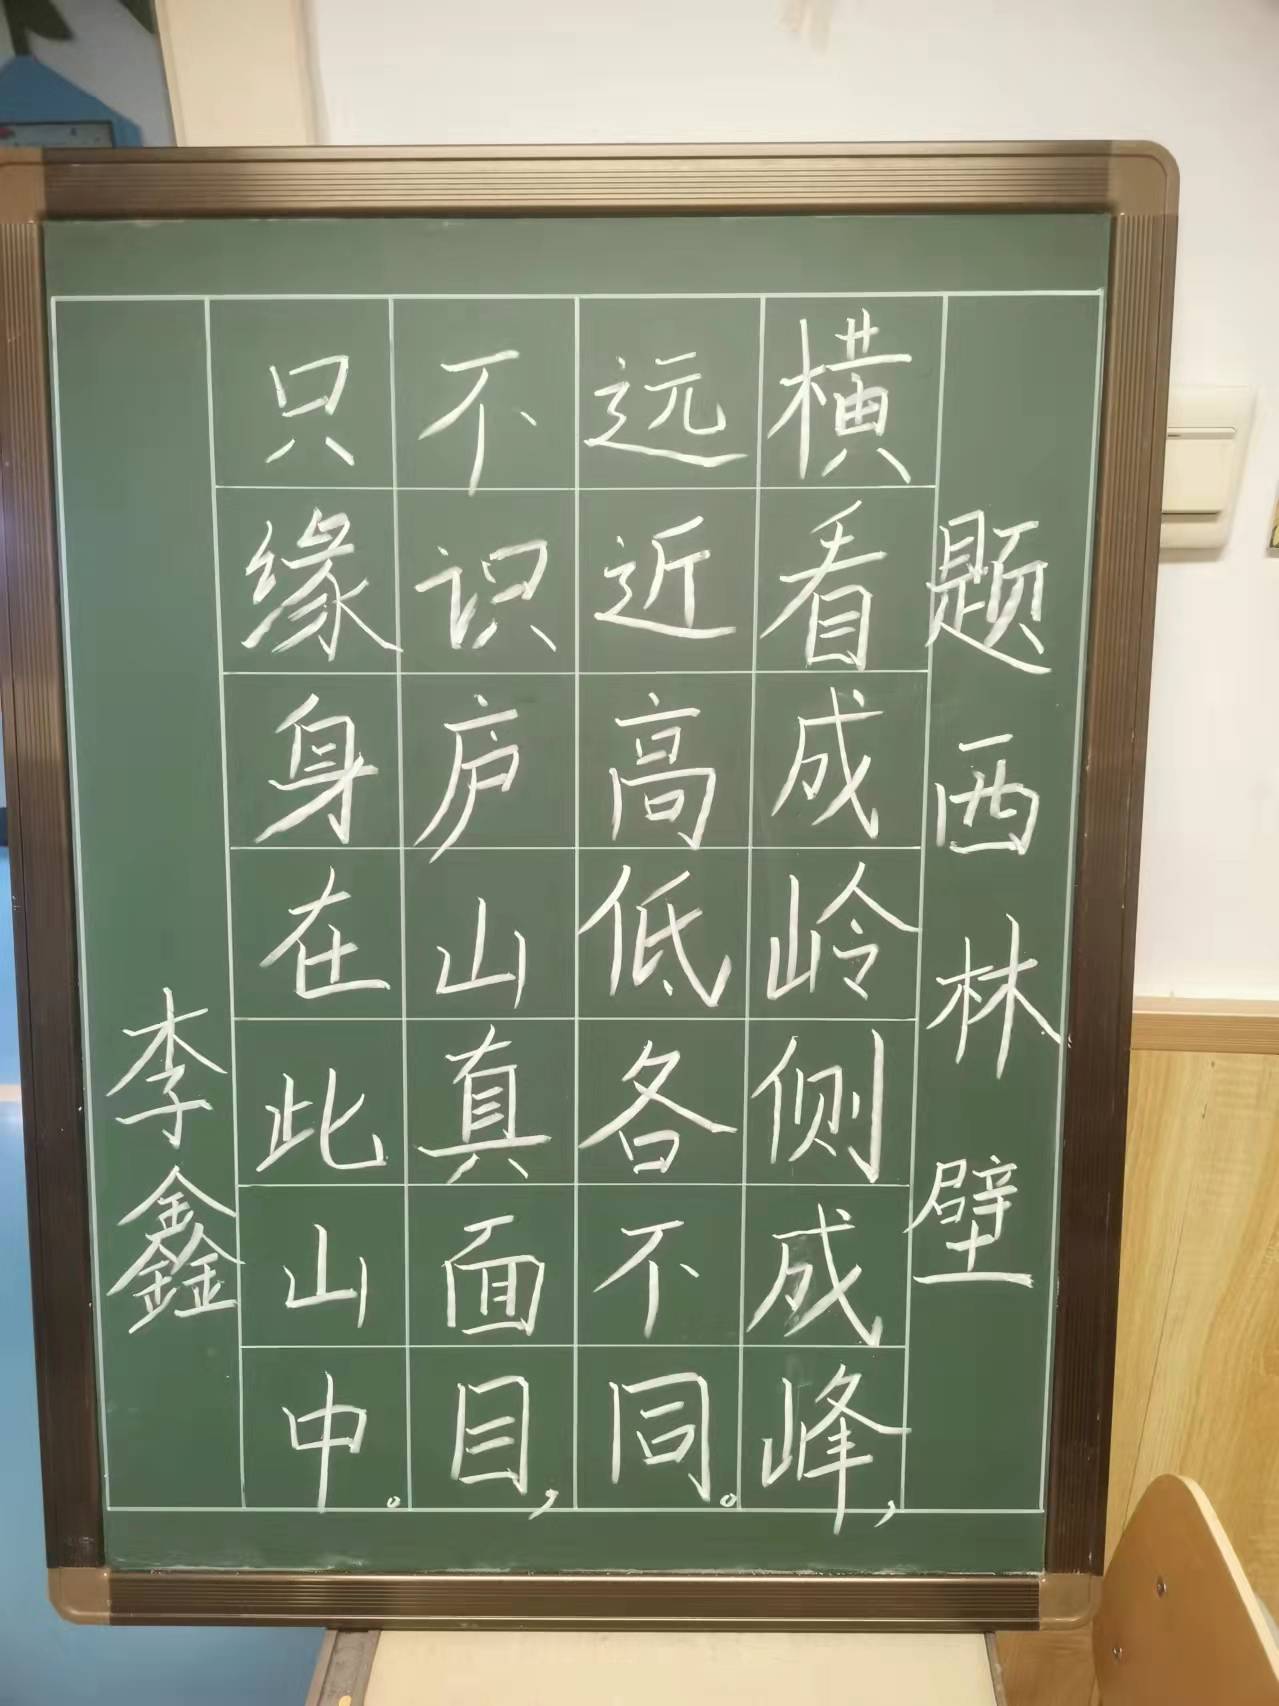 题西林壁
横看成岭侧成峰，
远近高低各不同。
不识庐山真面目，
只缘身在此山中。
李鑫